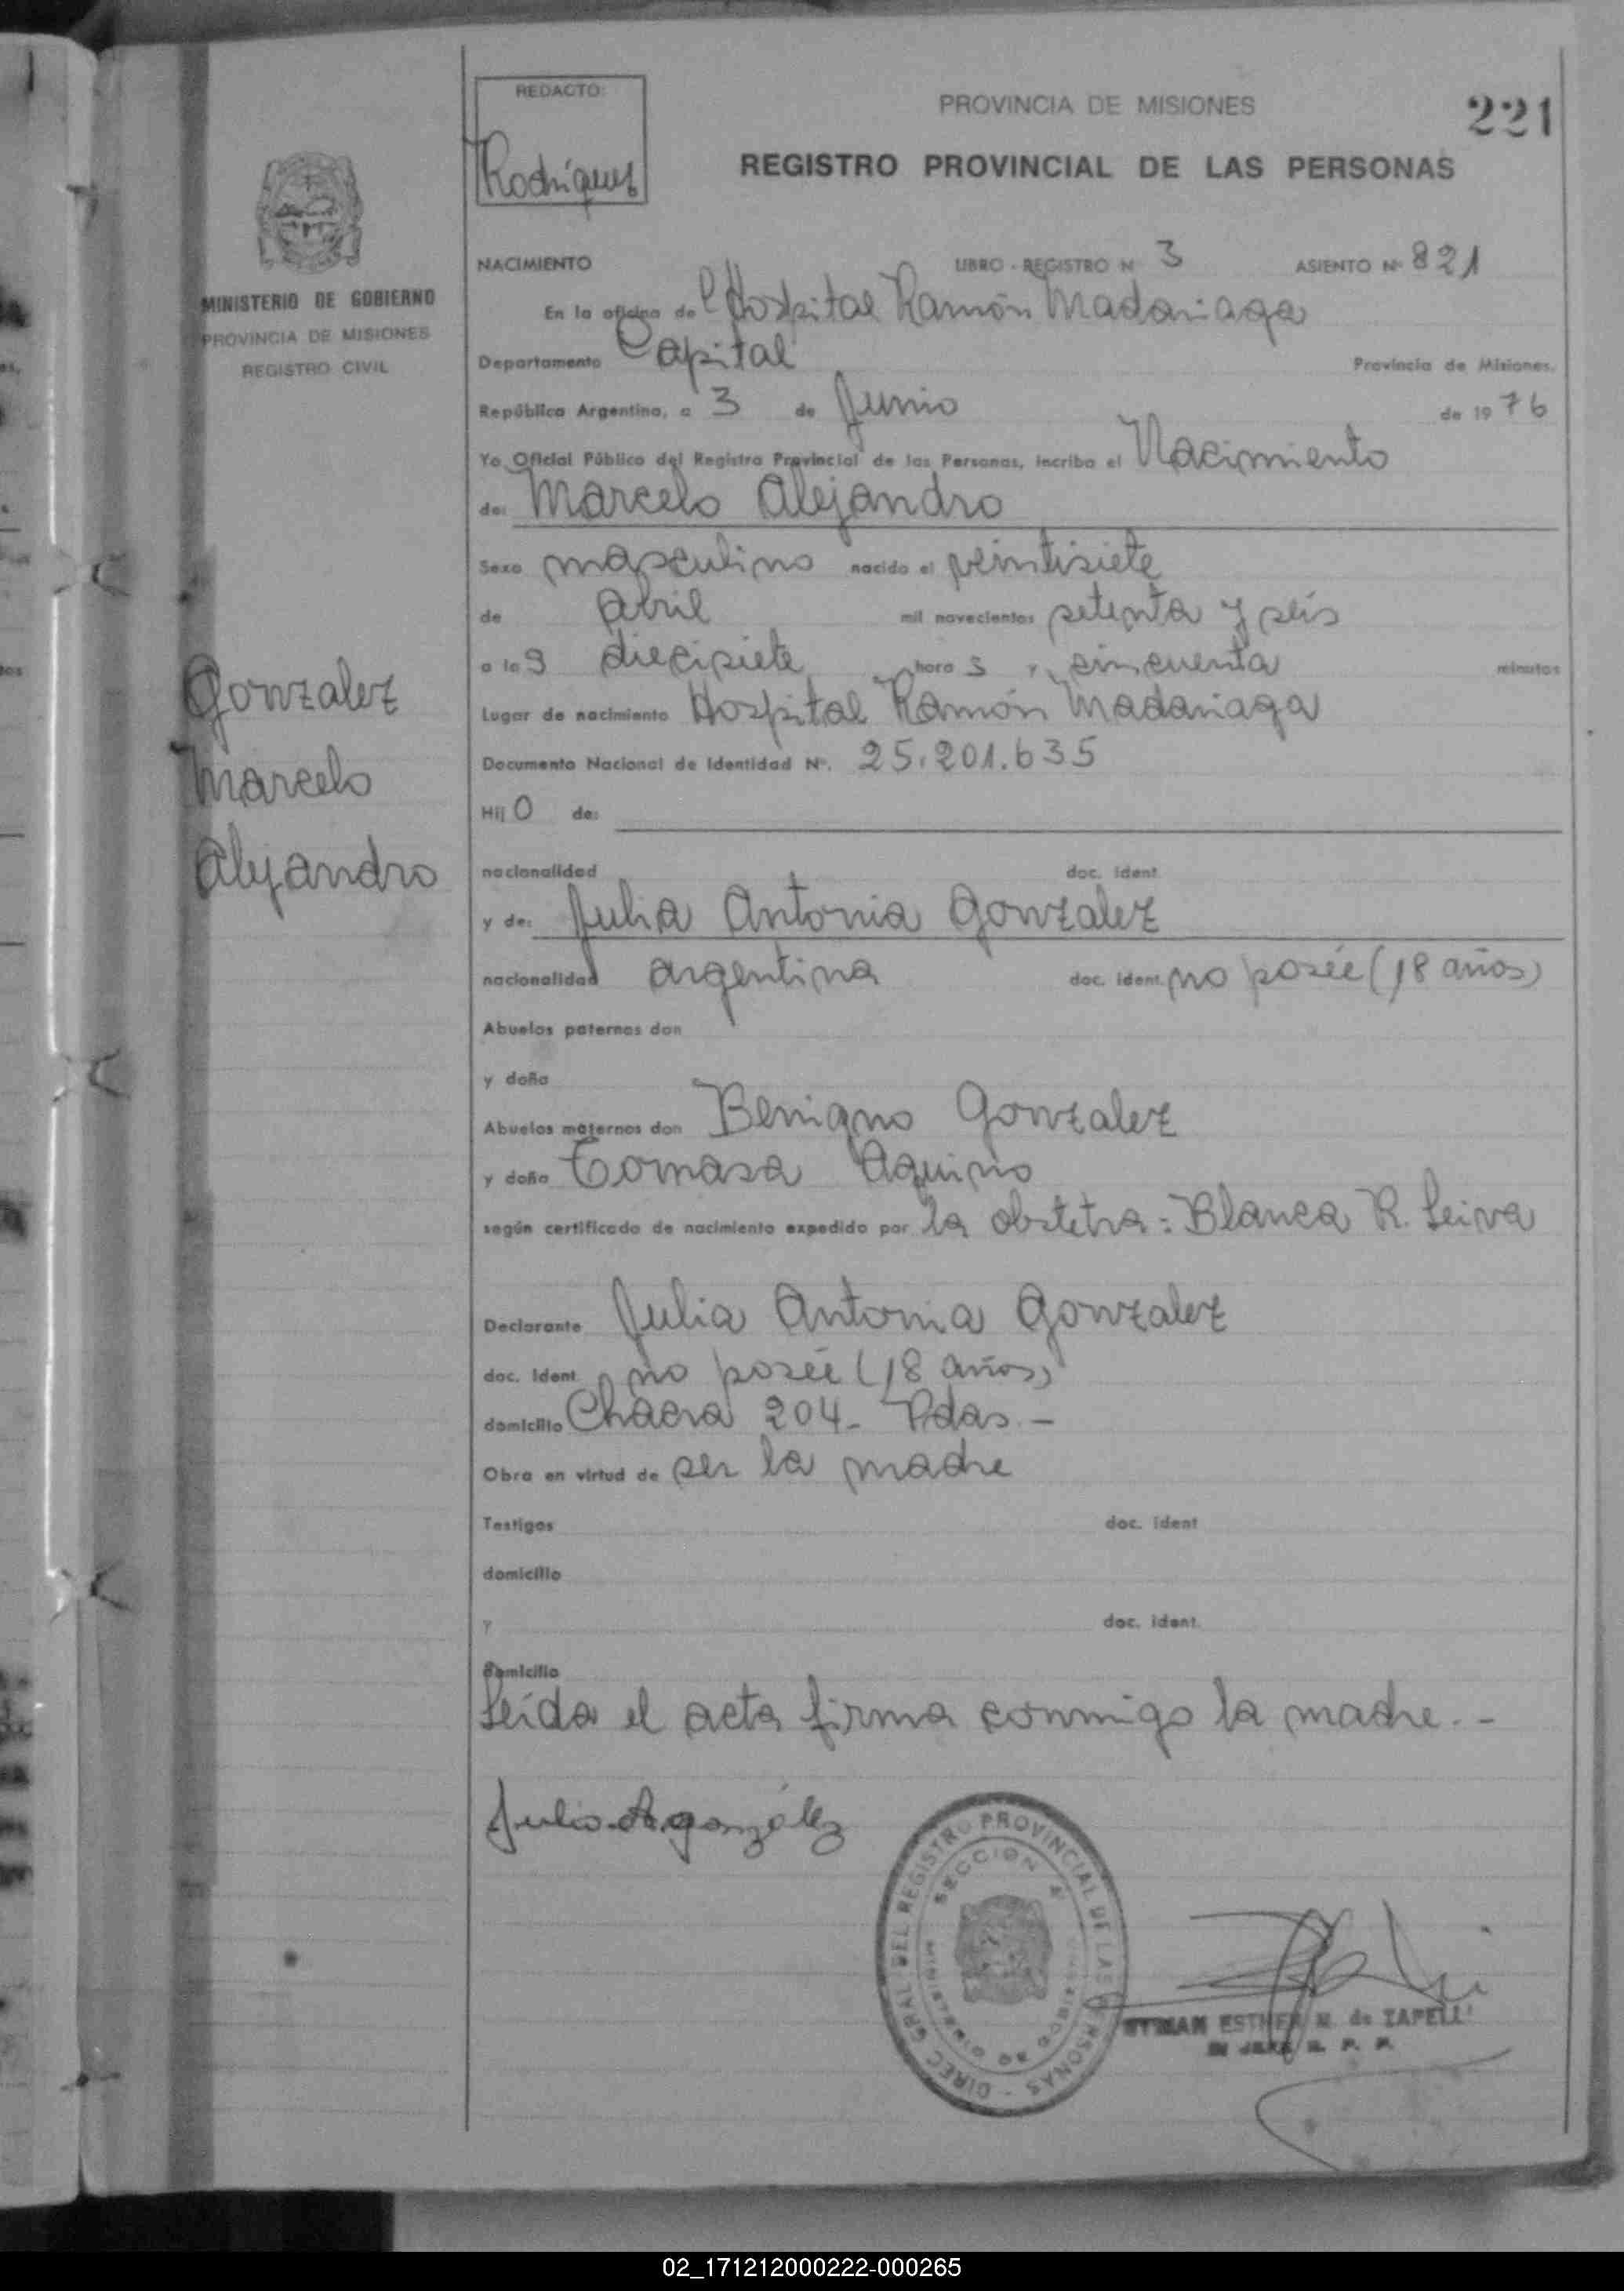 REDACTO:
Rodríguez
PROVINCIA DE MISIONES
221
REGISTRO PROVINCIAL DE LAS PERSONAS
MINISTERIO DE GOBIERNO
PROVINCIA DE MISIONES
REGISTRO CIVIL
NACIMIENTO LIBRO - REGISTRO Nº 3 ASIENTO Nº 821
En la oficina del Hospital Ramón Madariaga
Departamento Capital Provincia de Misiones.
República Argentina, a 3 de Junio de 1976
Yo Oficial Público del Registro Provincial de las Personas, incribo el Nacimiento
de: Marcelo Alejandro
Sexo masculino nacido el veintisiete
de abril mil novecientos setenta y seis
a las diecisiete horas y cincuenta minutos
Lugar de nacimiento Hospital Ramón Madariaga
Documento Nacional de Identidad Nº. 25.201.635
Hijo de:
Gonzalez
Marcelo
Alejandro
nacionalidad doc. ident
y de: Julia Antonia Gonzalez
nacionalidad argentina doc. ident. no posée (18 años)
Abuelos paternos don
y doña
Abuelos maternos don Benigno Gonzalez
y doña Tomasa Aquino
según certificado de nacimiento expedido por la obstetra: Blanca R. Leiva
Declarante Julia Antonia Gonzalez
doc. ident no posée (18 años)
domicilio Chacra 204- Pdas.-
Obra en virtud de ser la madre
Testigos doc. ident
domicilio
y doc. ident.
domicilio
Leída el acta firma conmigo la madre.-
Julia A gonzález
DIREC. GRAL. DEL REGISTRO PROVINCIAL DE LAS PERSONAS
SECCION
MINISTERIO DE GOBIERNO
ESTHER M. de ZAPELLI
R. P. P.
02_171212000222-000265